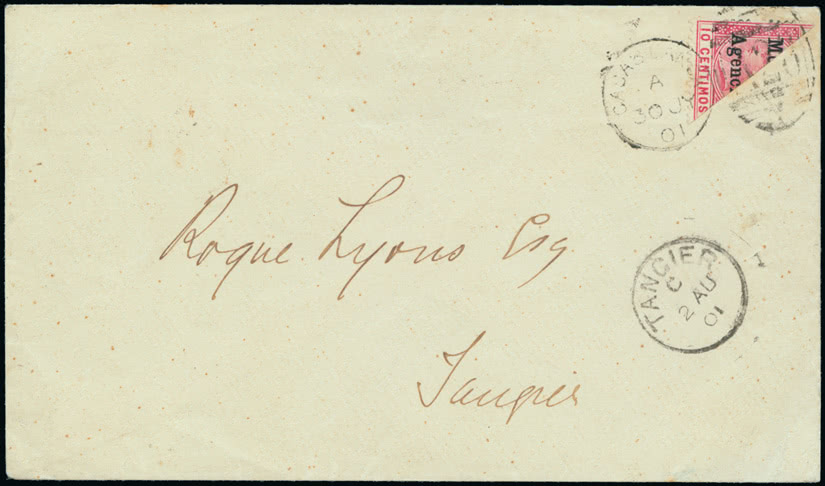 10 CENTIMOS
Agenc
A
30 JY
01
Roque Lyons Esq
Tangier
TANGIER
C
2 AU
01